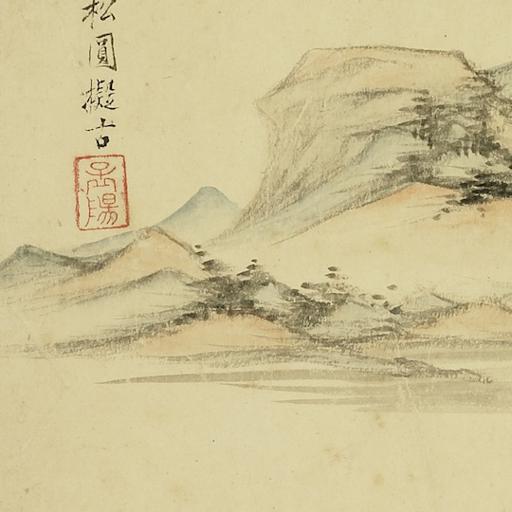 松圓擬古
子陽